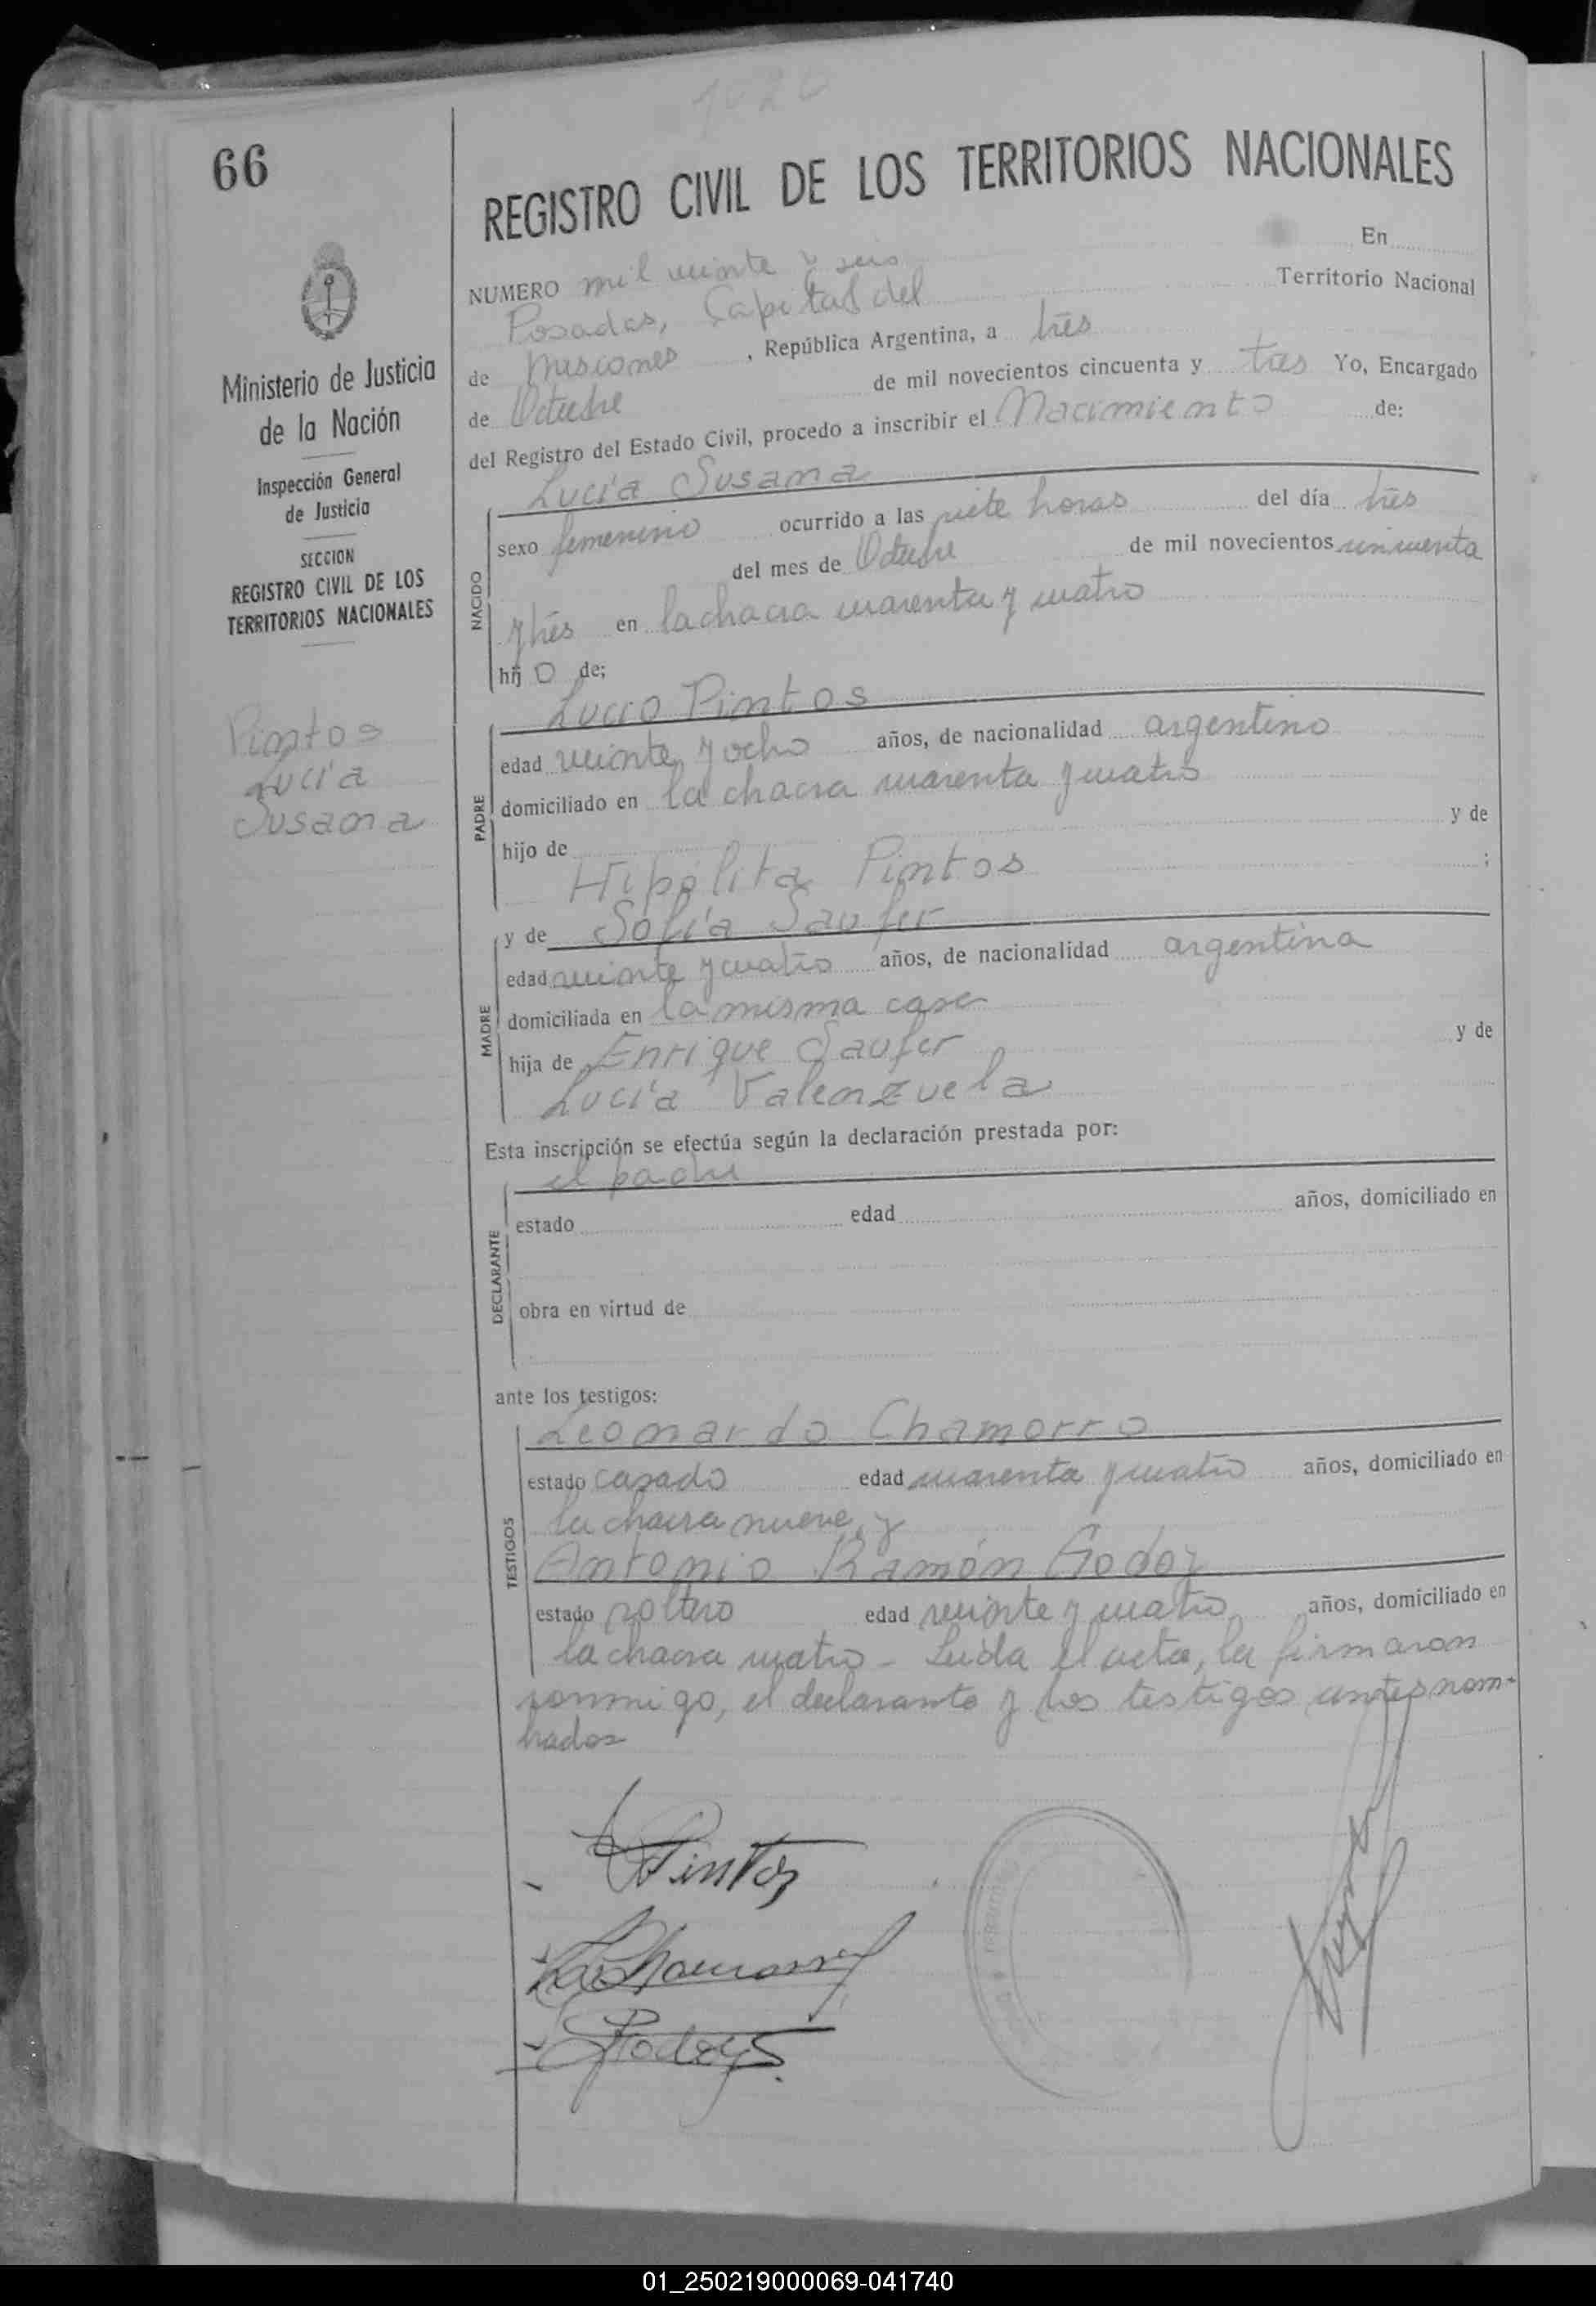 1026
66
REGISTRO CIVIL DE LOS TERRITORIOS NACIONALES
En
NUMERO mil veinte y seis
Territorio Nacional
Posadas, Capital del
de Misiones , República Argentina, a tres
de Octubre de mil novecientos cincuenta y tres Yo, Encargado
del Registro del Estado Civil, procedo a inscribir el Nacimiento de:
Ministerio de Justicia
de la Nación
Inspección General
de Justicia
SECCION
REGISTRO CIVIL DE LOS
TERRITORIOS NACIONALES
Pintos
Lucía
Susana
NACIDO
Lucía Susana
sexo femenino ocurrido a las siete horas del día tres
del mes de Octubre de mil novecientos cincuenta
y tres en la chacra cuarenta y cuatro
hij o de;
PADRE
Lucio Pintos
edad veinte y ocho años, de nacionalidad argentino
domiciliado en la chacra cuarenta y cuatro
hijo de y de
Hipólita Pintos ;
MADRE
y de Sofía Saufer
edad veinte y cuatro años, de nacionalidad argentina
domiciliada en la misma casa
hija de Enrique Saufer y de
Lucía Valenzuela
Esta inscripción se efectúa según la declaración prestada por:
DECLARANTE
el padre
estado edad años, domiciliado en
obra en virtud de
ante los testigos:
TESTIGOS
Leonardo Chamorro
estado casado edad cuarenta y cuatro años, domiciliado en
la chacra nueve, y
Antonio Ramón Godoy
estado soltero edad veinte y cuatro años, domiciliado en
la chacra cuatro - Leída el acta, la firmaron
conmigo, el declarante y los testigos antes nom-
brados
Pintos
L. Chamorro
Godoy
01_250219000069-041740